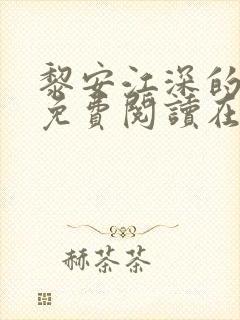 黎安江深的
免費閱讀在
赫茶茶